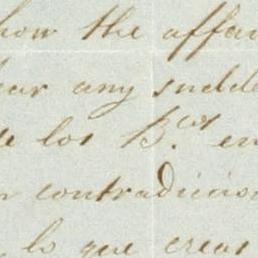 how the affai
ear any sudde
e los B.cos en
n contradicio
lo que creas